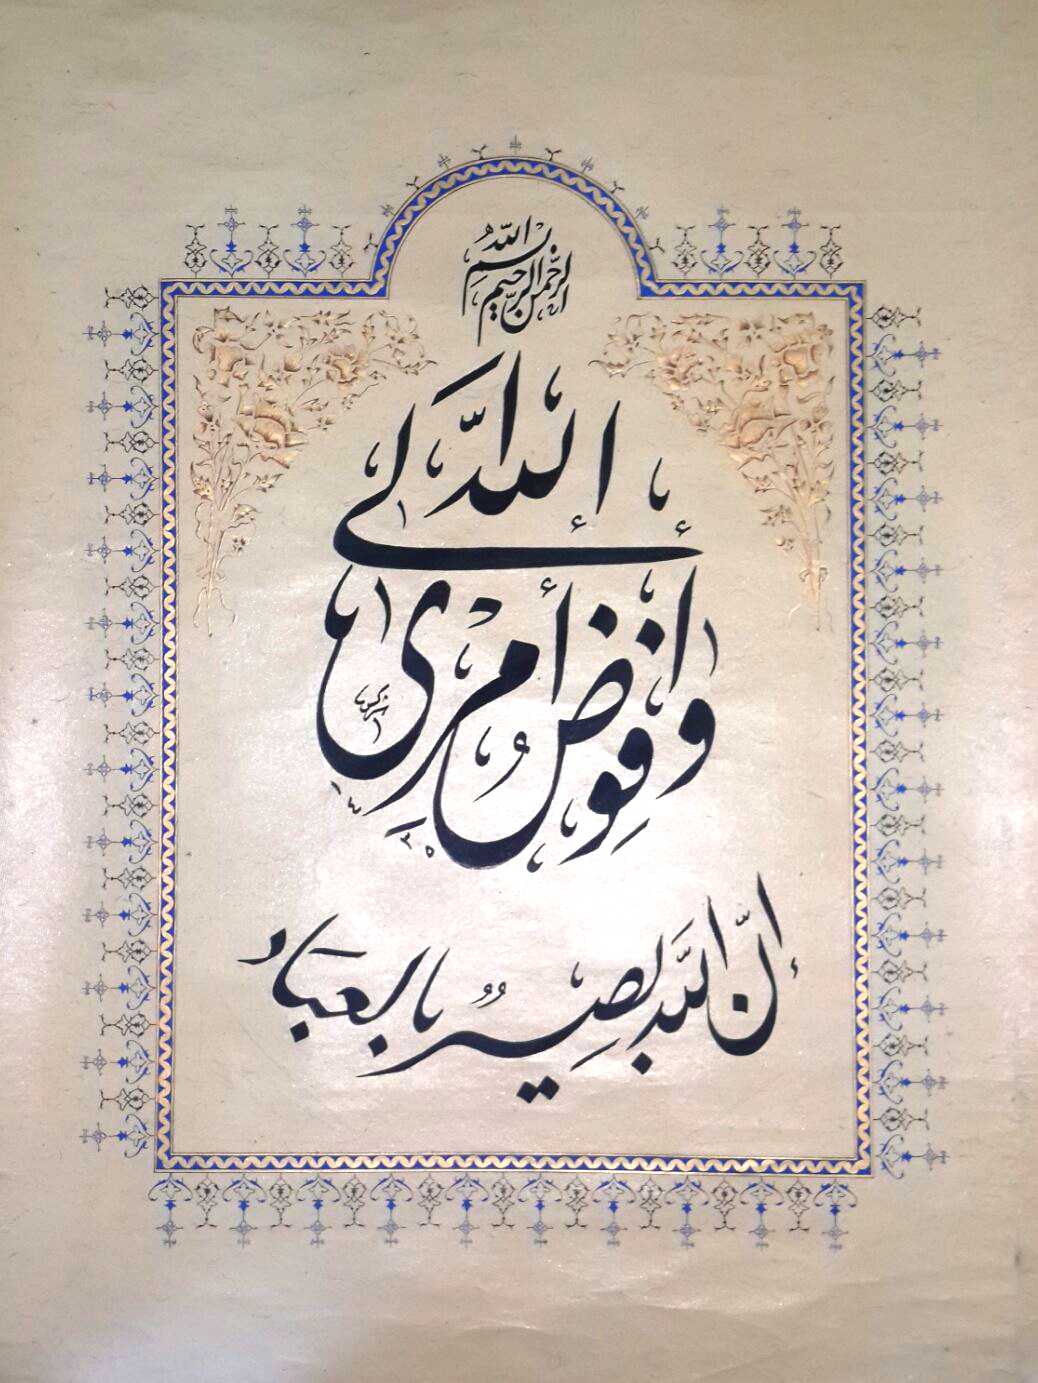 بسم الله
الرحمن الرحيم
وأفوض أمرى إلى الله
إن الله بصير بالعباد